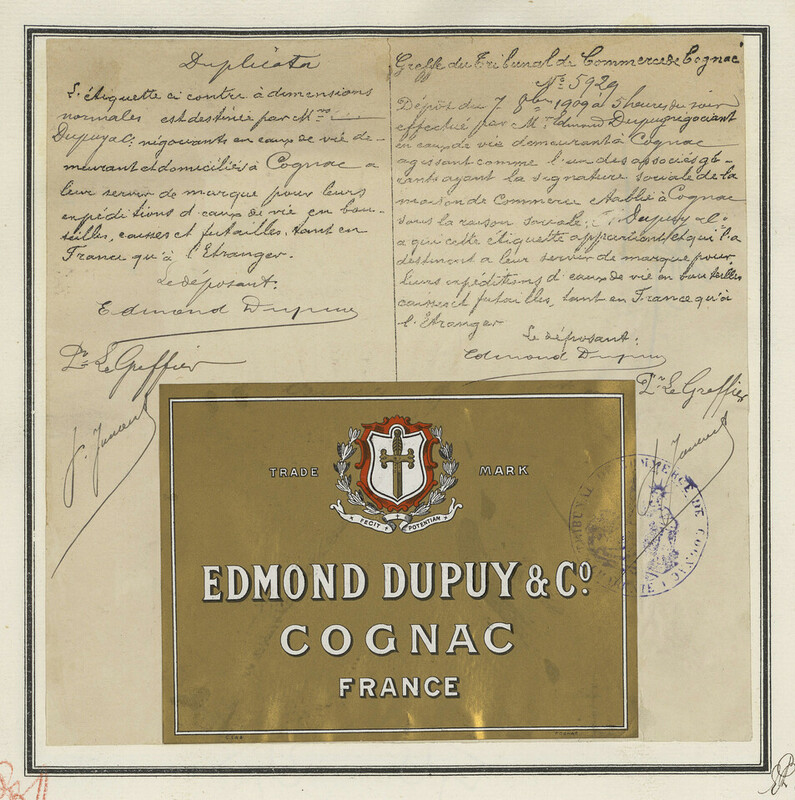 Duplicata
L'étiquette ci contre à dimensions
normales est destinée par M.
Dupuy & Co. négociants en eaux de vie de-
meurant et domiciliés à Cognac a
leur servir de marque pour leurs
expéditions d'eaux de vie en bou-
teilles, caisses et futailles, tant en
France qu'à l'Etranger.
Le déposant:
Edmond Dupuy
Pr. Le Greffier
Greffe du Tribunal de Commerce de Cognac
No: 5929
Dépôt du 7 9bre 1909 à 5 heures du soir
effectué par M. Edmond Dupuy négociant
en eaux de vie demeurant à Cognac
agissant comme l'un des associés gé-
rants ayant la signature sociale de la
maison de Commerce établie à Cognac
sous la raison sociale: Dupuy & Co.
a qui cette étiquette appartient et qui l'a
destinent a leur servir de marque pour
leurs expéditions d'eaux de vie en bouteilles
caisses et futailles, tant en France qu'à
l'Etranger
Le déposant:
Edmond Dupuy
Pr. Le Greffier
TRADE MARK
FECIT POTENTIAM
EDMOND DUPUY & Co.
COGNAC
FRANCE
TRIBUNAL DE COMMERCE DE COGNAC